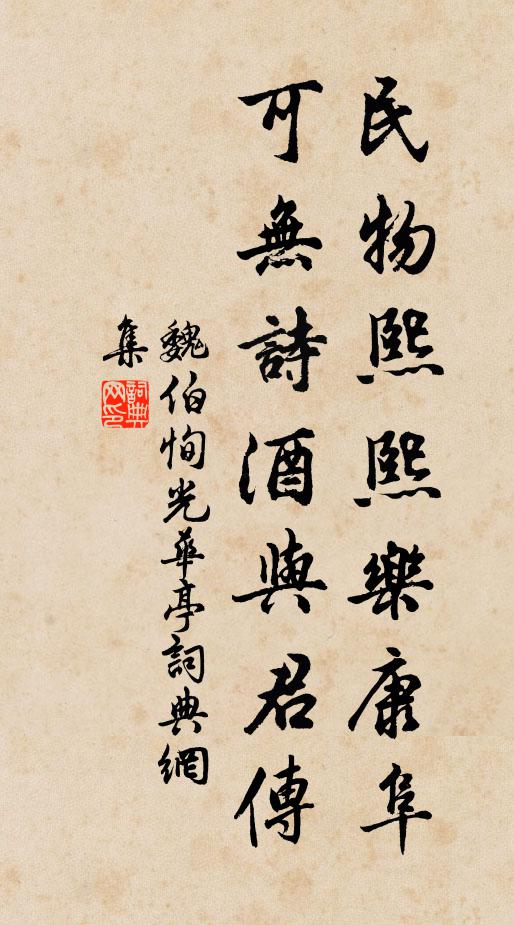 民物熙熙樂康阜
可無詩酒與君傳
魏伯恂光華亭詞典網
集
詞典網印